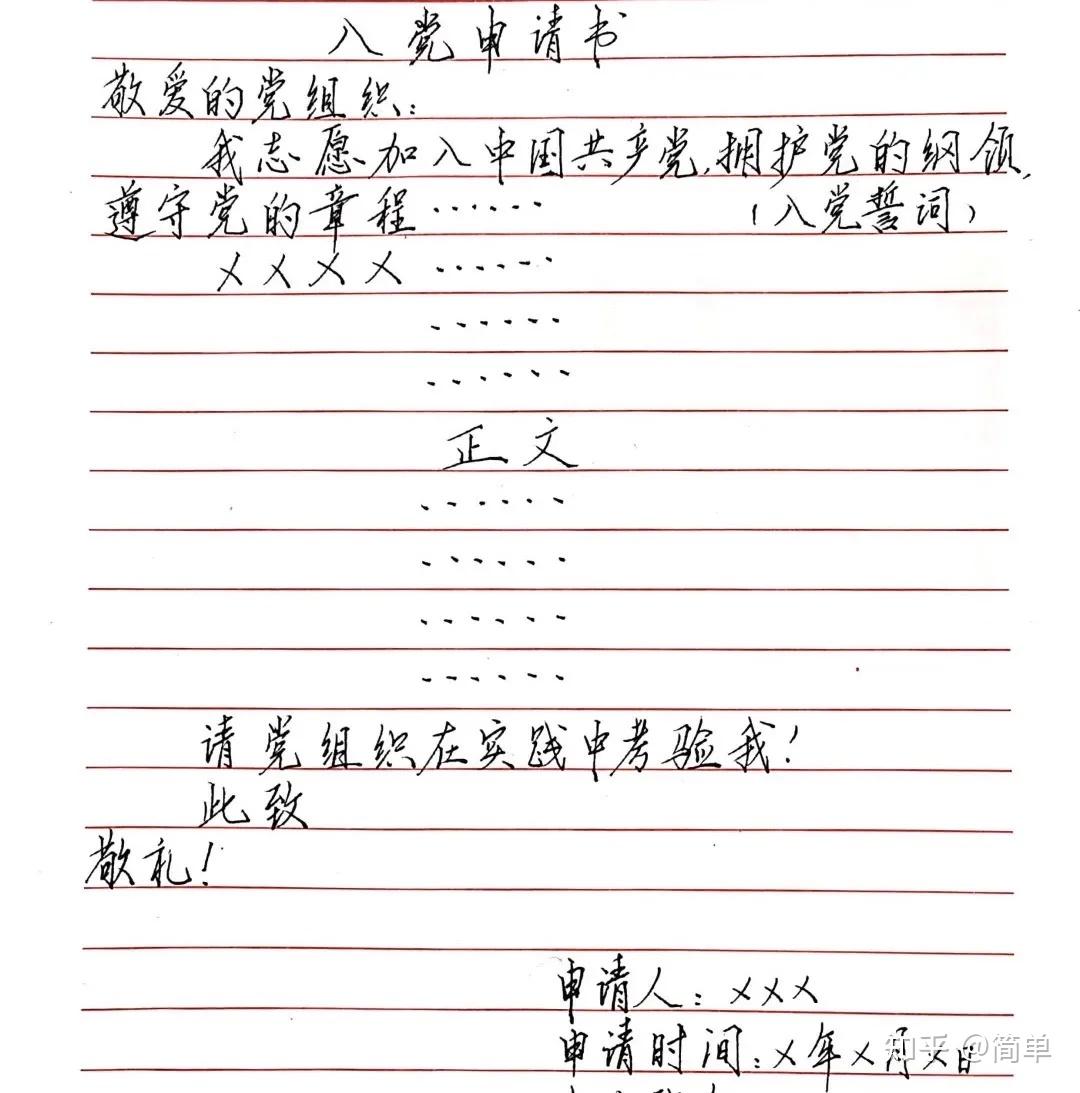 入党申请书
敬爱的党组织:
我志愿加入中国共产党,拥护党的纲领,
遵守党的章程…… (入党誓词)
××××……
……
……
正文
……
……
……
……
请党组织在实践中考验我!
此致
敬礼!
申请人:×××
申请时间:×年×月×日
知乎 @简单